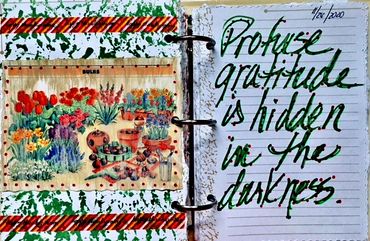 BULBS
11/28/2020
Profuse
gratitude
is hidden
in the
darkness.